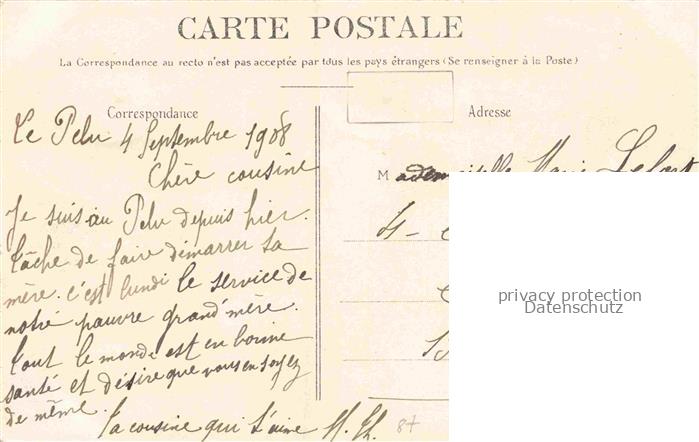 CARTE POSTALE
La Correspondance au recto n'est pas acceptée par tous les pays étrangers (Se renseigner à la Poste)
Correspondance
Adresse
Le Pelu 4 Septembre 1908
Chère cousine
Je suis au Pelu depuis hier.
tâche de faire démarrer ta
mère. c'est lundi le service de
notre pauvre grand'mère.
tout le monde est en bonne
santé et désire que vous en soyez
de même.
ta cousine qui t'aime M. Th.
87
Mademoiselle Marie
privacy protection
Datenschutz